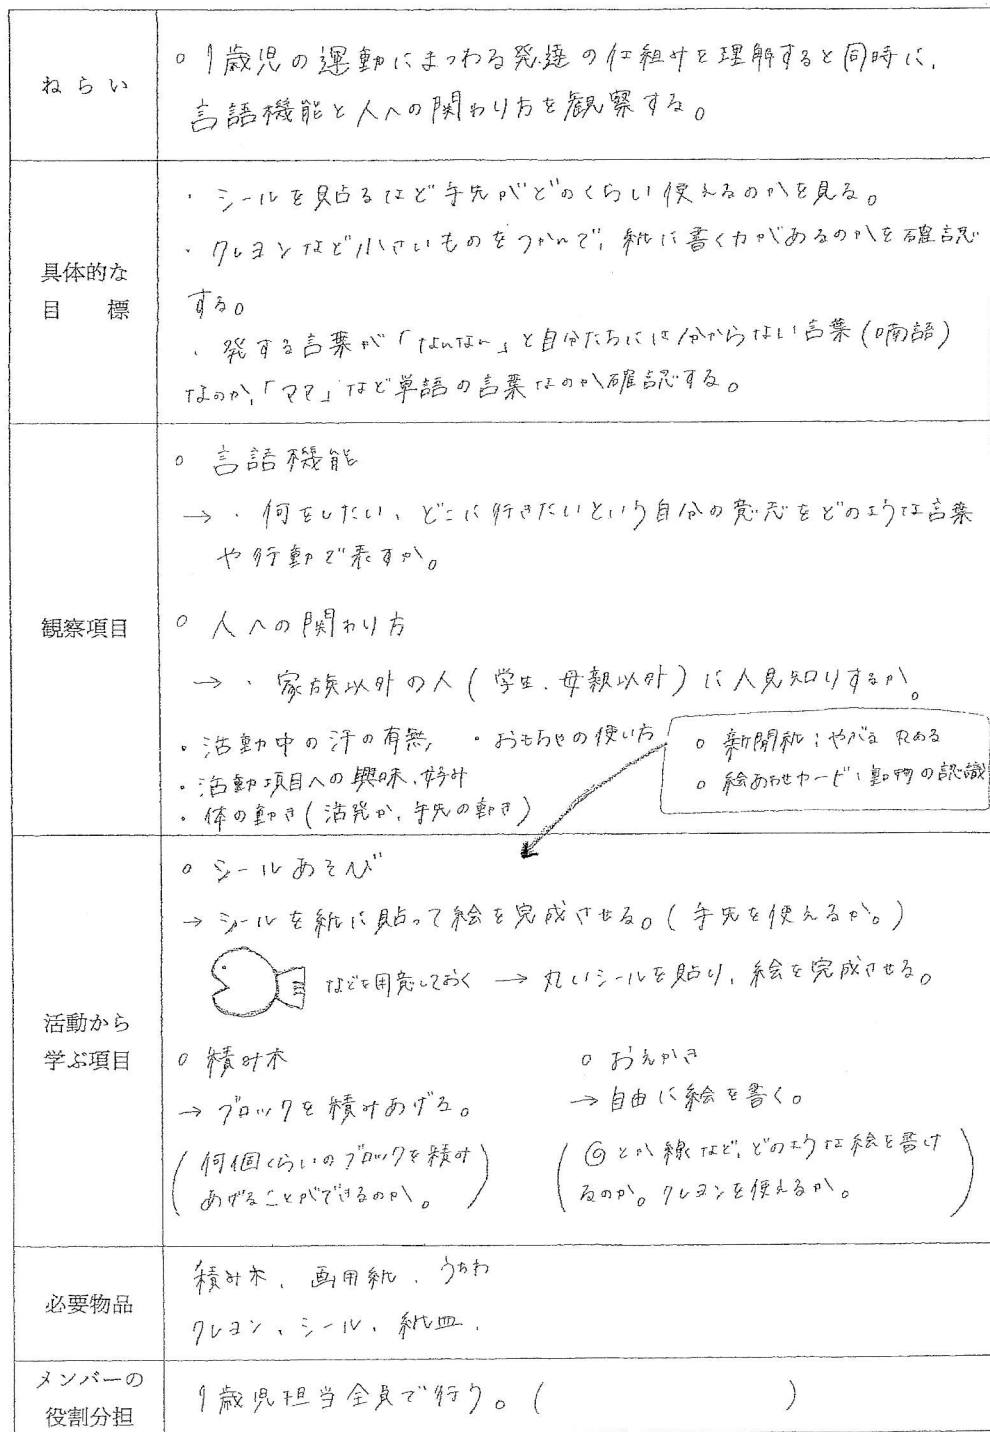 ねらい
○ 1歳児の運動にまつわる発達の仕組みを理解すると同時に、
言語機能と人への関わり方を観察する。
具体的な
目標
・シールを貼るなど手先がどのくらい使えるのかを見る。
・クレヨンなど小さいものをつかんで、紙に書く力があるのかを確認
する。
・発する言葉が「なんなん」と自分たちには分からない言葉(喃語)
なのか、「ママ」など単語の言葉なのか確認する。
観察項目
○ 言語機能
→・何をしたい、どこに行きたいという自分の意志をどのような言葉
や行動で表すか。
○ 人への関わり方
→・家族以外の人(学生、母親以外)に人見知りするか。
・活動中の汗の有無 ・おもちゃの使い方
・活動項目への興味、好み
・体の動き(活発か、手先の動き)
○ 新聞紙:やぶる 丸める
○ 絵あわせカード:動物の認識
活動から
学ぶ項目
○ シールあそび
→ シールを紙に貼って絵を完成させる。(手先を使えるか。)
などを用意しておく → 丸いシールを貼り、絵を完成させる。
○ 積み木
→ ブロックを積みあげる。
(何個くらいのブロックを積み
あげることができるのか。)
○ おえかき
→ 自由に絵を書く。
(◎とか線など、どのような絵を書け
るのか。クレヨンを使えるか。)
必要物品
積み木、画用紙、うちわ
クレヨン、シール、紙皿、
メンバーの
役割分担
1歳児担当全員で行う。( )